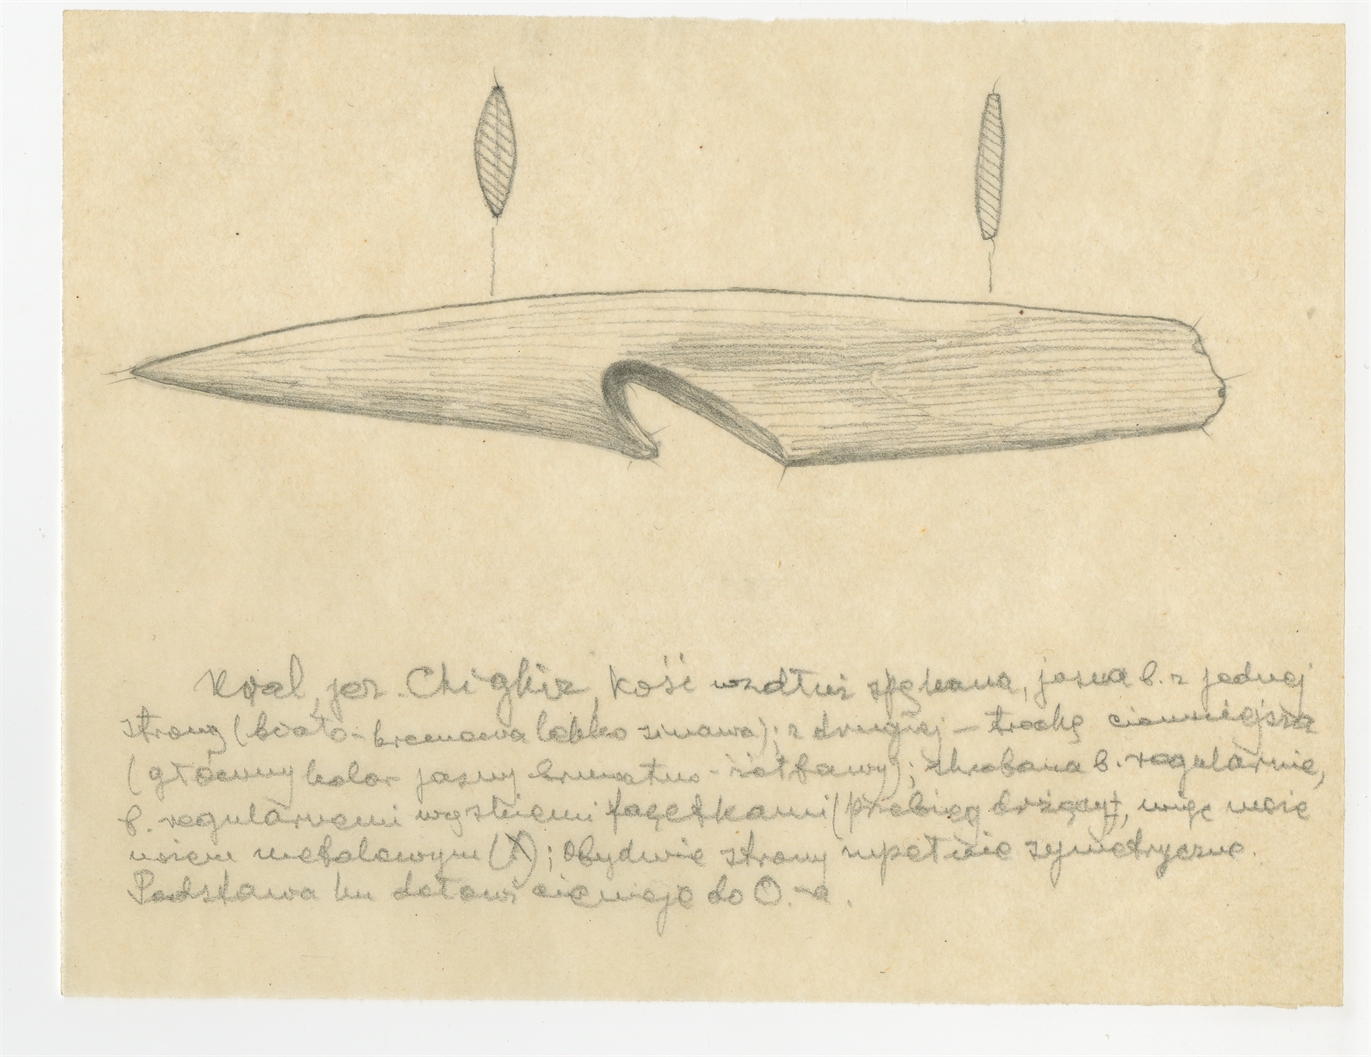 Ural, jez. Chigkiz, kość wzdłuż spękana, jasna b. z jednej
strony (biało-kremowa lekko sinawa); z drugiej – trochę ciemniejsza
(główny kolor jasny brunatno-żółtawy); skrobana b. regularnie,
b. regularnemi wąskiemi facetkami (przebieg drżący), więc może
nożem metalowym (?); Obydwie strony zupełnie symetryczne.
Podstawa ku dołowi do O.-a.